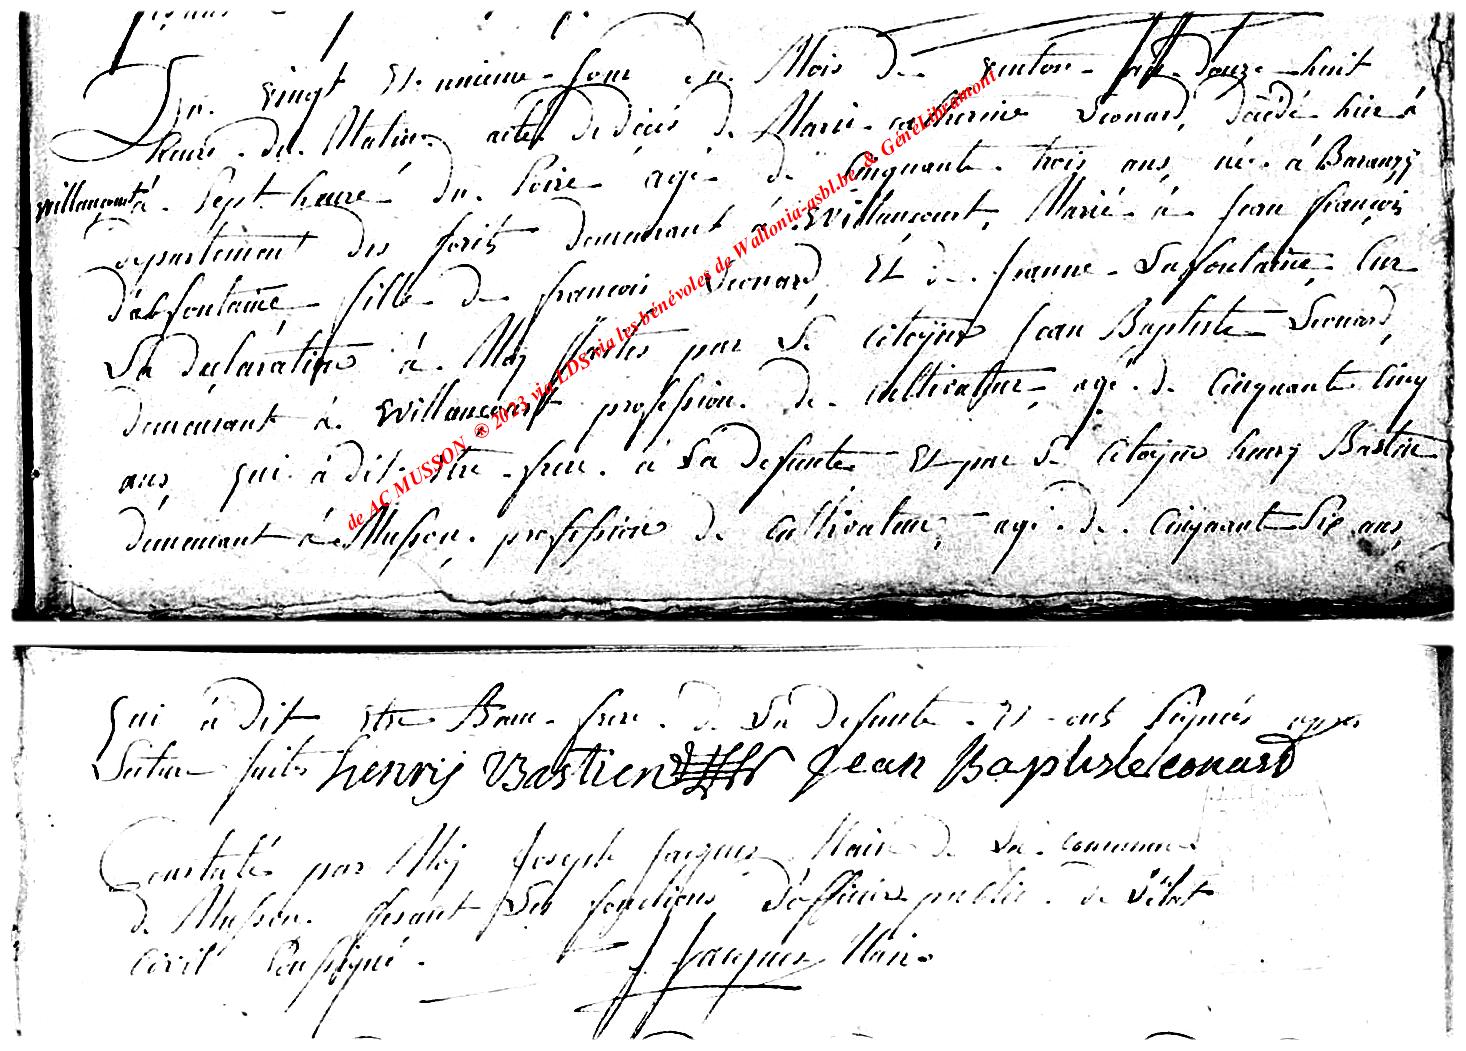 Du vingt et unieme jour du Mois de ventose an douze huit
heure du Matin acte de décés de Marie catherine Leonard, décédé hier á
Willancourt á Sept heure du Soire agé de Cinquante trois ans, née á Baranzÿ
departement des forêts demeurant á Willancourt, Marié á jean françois
dabfontaine fille de francois Leonard, Et de jeanne Lafontaine Sur
La declaration á Moÿ faites par Le Citoÿen jean Baptiste Leonard,
demeurant á Willancourt profession de cultivateur agé de Cinquante Cinq
ans, qui á dit etre frere á La defunte Et par Le Citoÿen henrÿ Bastin
demeurant á Musson, profession de Cultivateur, agé de Cinquante Six ans,
qui á dit etre Beau frere de La defunte Et ont Signés apres
Lecture faites henrÿ Bastien jean Baptiste Leonard
Constatés par Moÿ Joseph jacques Maire de La commune
de Musson fesant Les fonctions d'officier public de L'état
civil Sousigné. J Jacques Maire
de AC MUSSON ® 2023 via LDS via les bénévoles de Wallonia-asbl.be & GénéLibramont